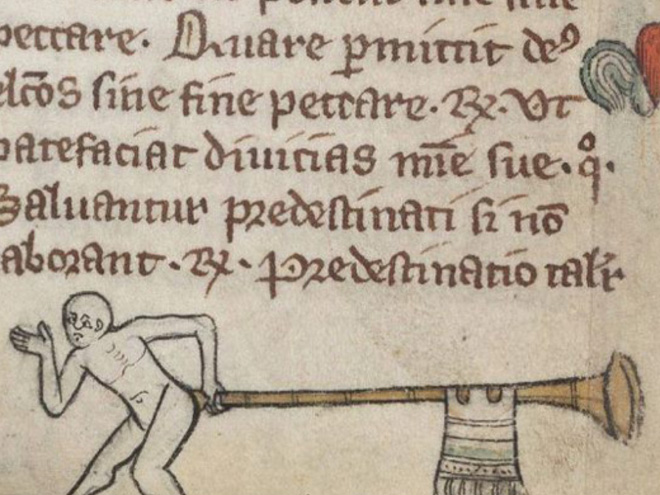 peccare. Quare ꝑmittit deꝰ
elc̄os sine fine peccare. ꝶ. Vt
patefaciat diuicias mīe sue. q̊.
Saluantur predestinati si nō
aborant. ꝶ. Predestinatio